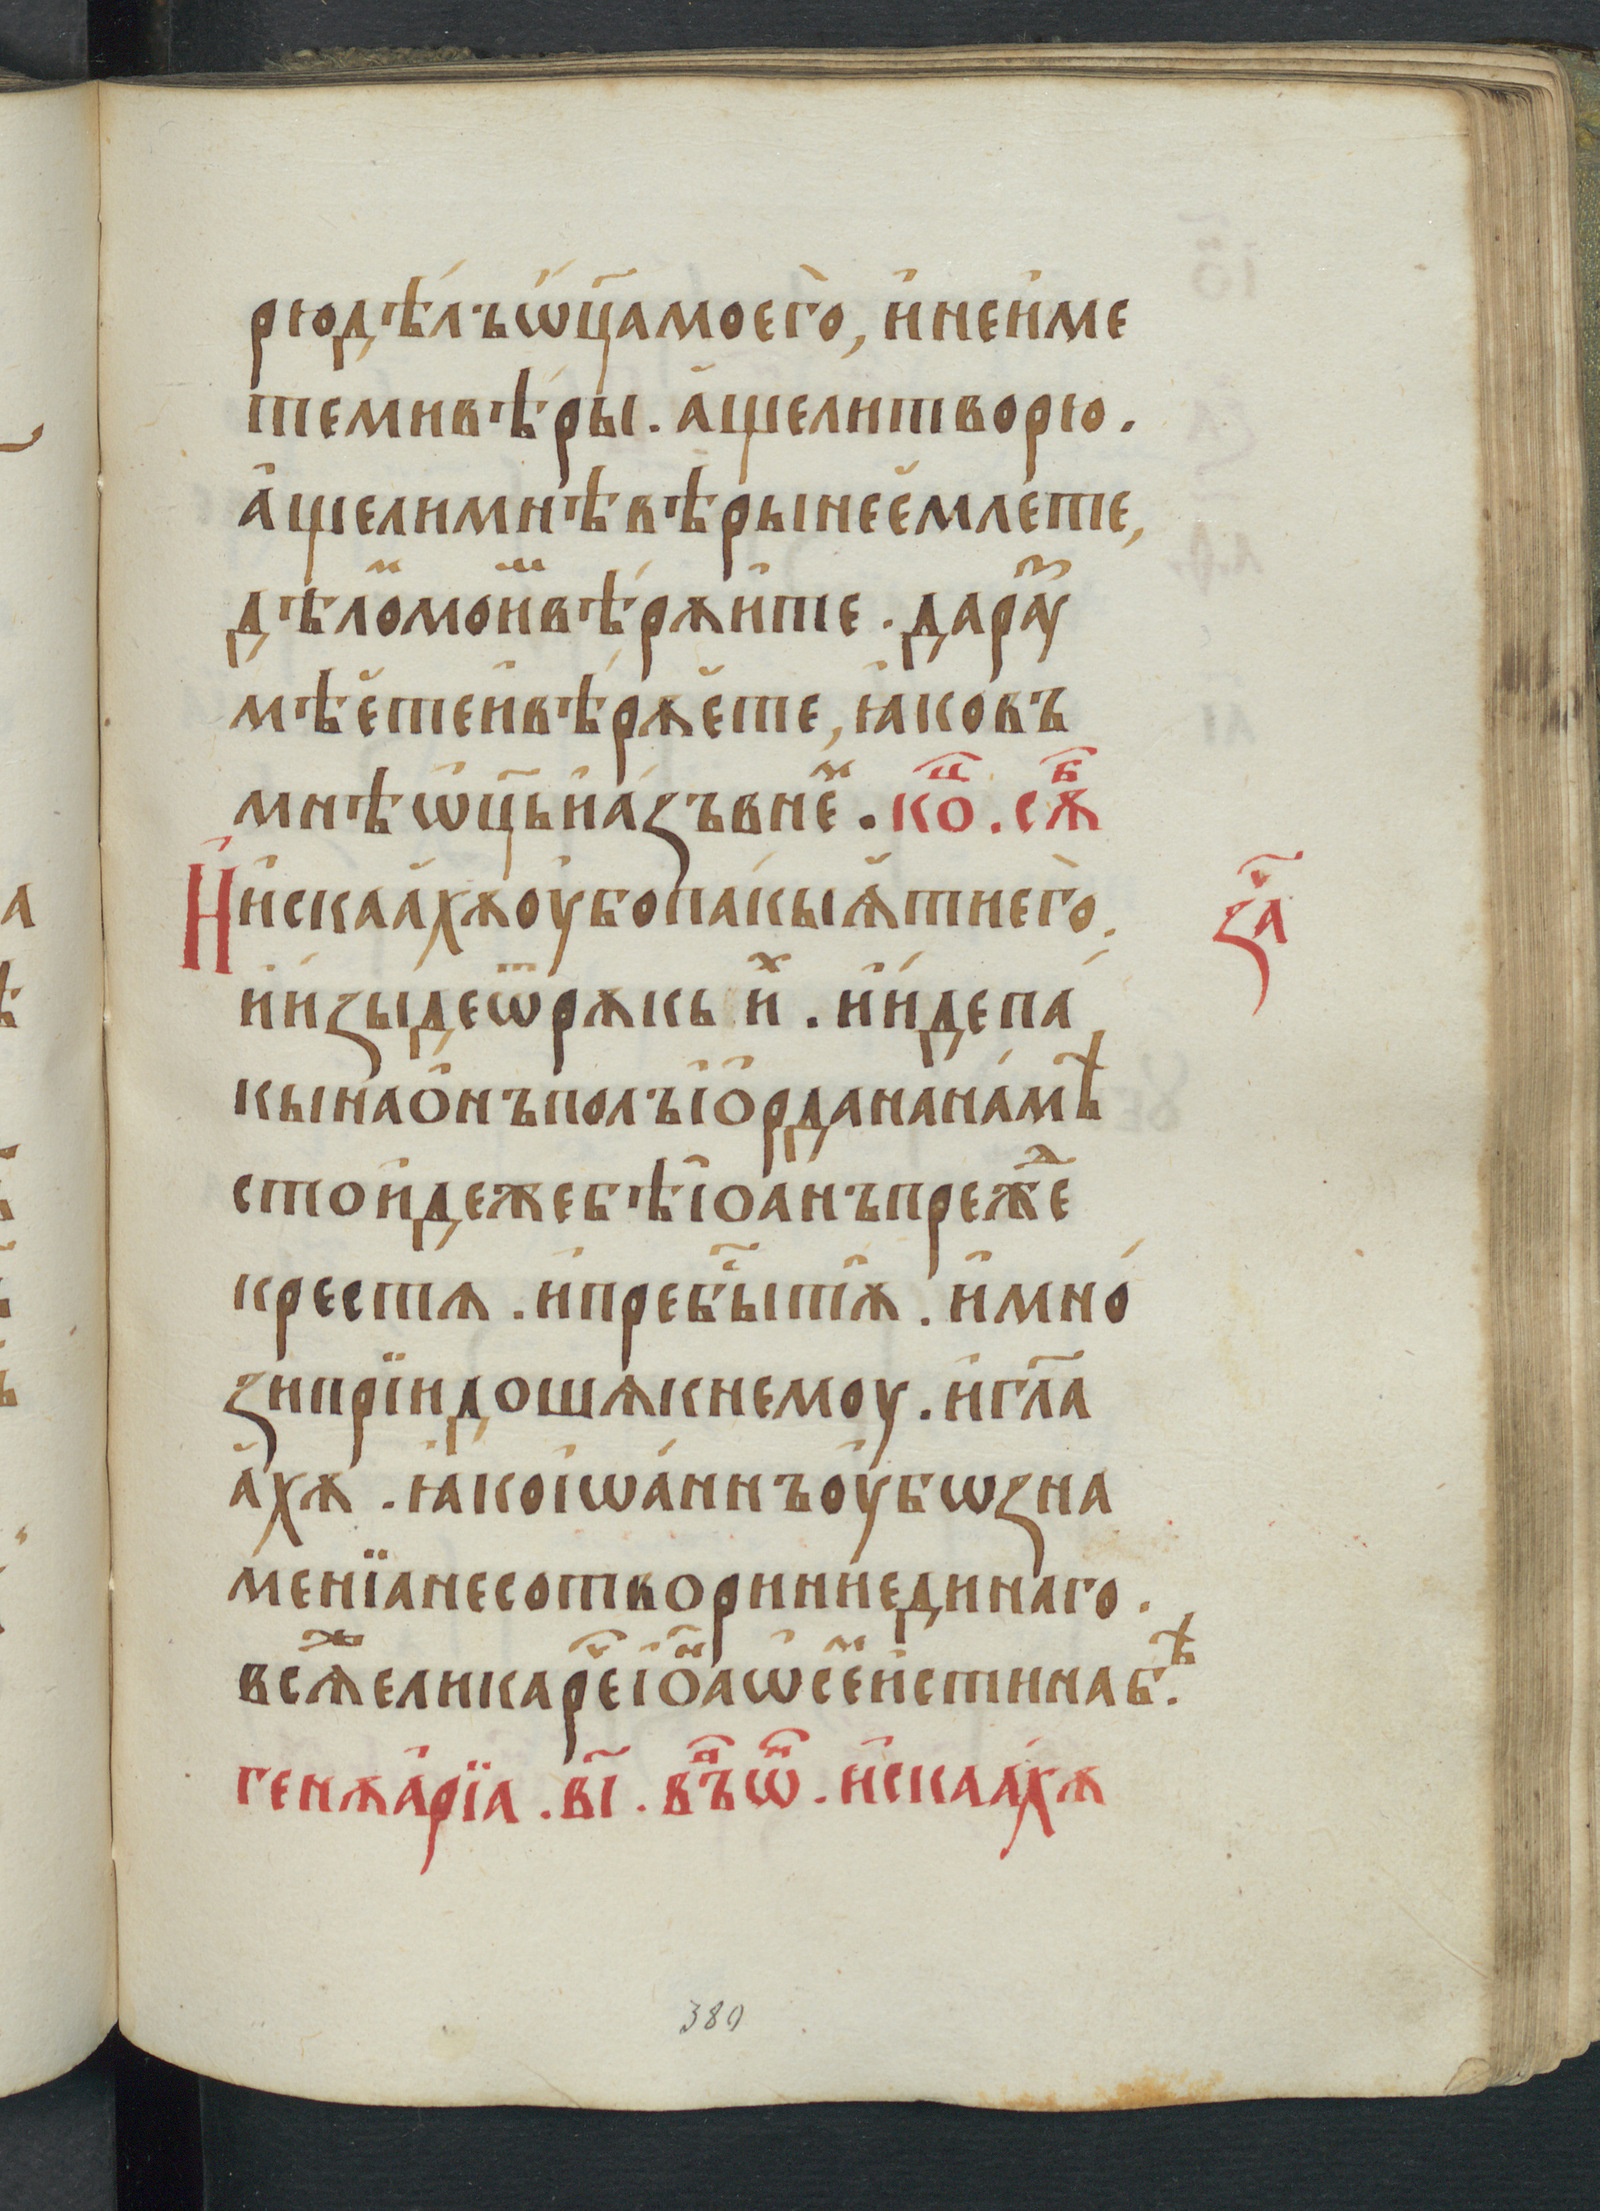 рюдѣ́лъѿц҃амоего̀, и҆неи҆ме
темивѣ́ры. а҆щелитворю.
а҆щелимнѣвѣ́рынее҆млете,
дѣлⷨомоиⷨвѣ́рѫи҆те. даразꙋ
мѣе҆теи҆вѣ́рѫе҆те, ꙗ҆ковъ
мнѣѡ҆ц҃ьи҆а́ꙁъвнеⷨ. коⷰ҇. сѫⷠ҇
И҆и҆скаа҆хѫоубопакыꙗ҆тиего̀.
и҆и́ꙁы́деѿрѫкьиⷯ. и҆и́депа́
кынао҆нъполъі҆о҆рданана́мѣ
стои҆дежебѣі҆оанъпрежⷣе
крестѧ. и҆пребы́стьтꙋ. и҆мно́
ꙁипрїидошѧкнемоу. и҆гл҃а
а҆хѫ. ꙗ҆коі҆ѡа́ннъоу҆бѡꙁна
менїанесотвориниединаго.
всѧⷤеликарече́і҆оⷩ҇аѡ҆сеⷨи҆стинабѣ.
генѫа́рїа. в҃і. вⷩ҇ъѿ. и҆скаа́хѫ
ꙁаⷱ҇
380